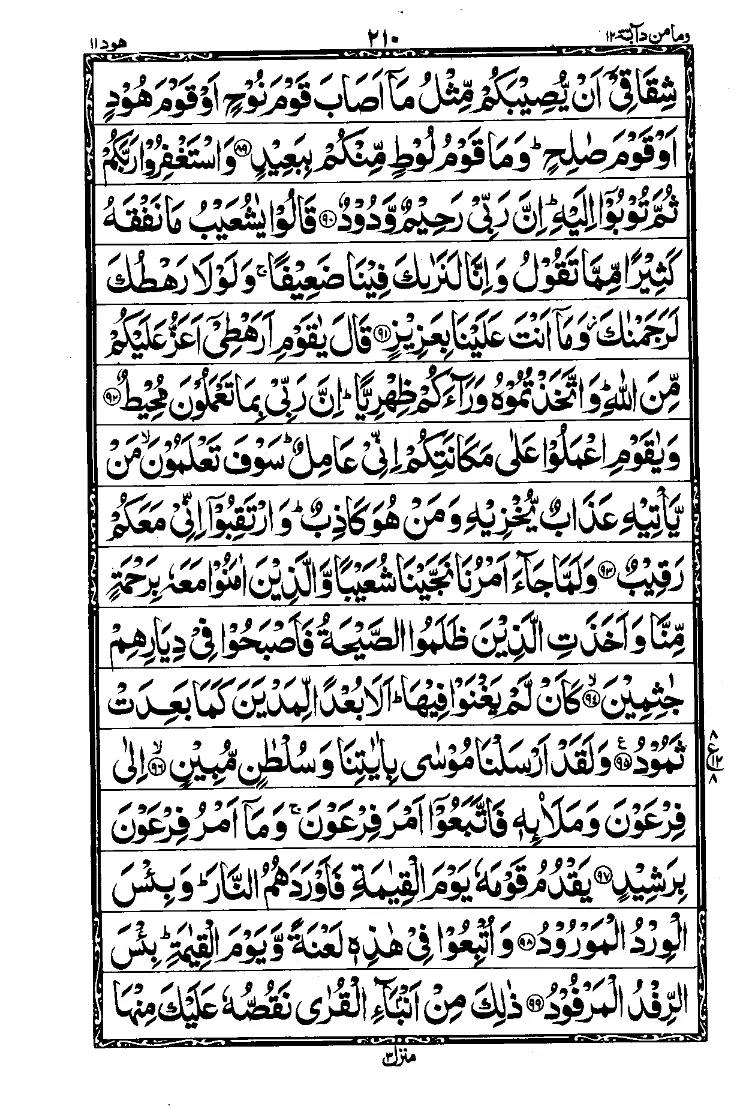 وما من دآبة ١٢ ٢١٠ هود ١١
شِقَاقِيْۤ اَنْ يُّصِيْبَكُمْ مِّثْلُ مَاۤ اَصَابَ قَوْمَ نُوْحٍ اَوْ قَوْمَ هُوْدٍ
اَوْ قَوْمَ صٰلِحٍؕ وَمَا قَوْمُ لُوْطٍ مِّنْكُمْ بِبَعِيْدٍ ﴿۸۹﴾ وَاسْتَغْفِرُوْا رَبَّكُمْ
ثُمَّ تُوْبُوْۤا اِلَيْهِؕ اِنَّ رَبِّيْ رَحِيْمٌ وَّدُوْدٌ ﴿۹۰﴾ قَالُوْا يٰشُعَيْبُ مَا نَفْقَهُ
كَثِيْرًا مِّمَّا تَقُوْلُ وَاِنَّا لَنَرٰىكَ فِيْنَا ضَعِيْفًاۚ وَلَوْلَا رَهْطُكَ
لَرَجَمْنٰكَؗ وَمَاۤ اَنْتَ عَلَيْنَا بِعَزِيْزٍ ﴿۹۱﴾ قَالَ يٰقَوْمِ اَرَهْطِيْۤ اَعَزُّ عَلَيْكُمْ
مِّنَ اللّٰهِؕ وَاتَّخَذْتُمُوْهُ وَرَآءَكُمْ ظِهْرِيًّاؕ اِنَّ رَبِّيْ بِمَا تَعْمَلُوْنَ مُحِيْطٌ ﴿۹۲﴾
وَيٰقَوْمِ اعْمَلُوْا عَلٰى مَكَانَتِكُمْ اِنِّيْ عَامِلٌؕ سَوْفَ تَعْلَمُوْنَۙ مَنْ
يَّاْتِيْهِ عَذَابٌ يُّخْزِيْهِ وَمَنْ هُوَ كَاذِبٌؕ وَارْتَقِبُوْۤا اِنِّيْ مَعَكُمْ
رَقِيْبٌ ﴿۹۳﴾ وَلَمَّا جَآءَ اَمْرُنَا نَجَّيْنَا شُعَيْبًا وَّالَّذِيْنَ اٰمَنُوْا مَعَهٗ بِرَحْمَةٍ
مِّنَّا وَاَخَذَتِ الَّذِيْنَ ظَلَمُوا الصَّيْحَةُ فَاَصْبَحُوْا فِيْ دِيَارِهِمْ
جٰثِمِيْنَ ﴿۹۴﴾ۙ كَاَنْ لَّمْ يَغْنَوْا فِيْهَاؕ اَلَا بُعْدًا لِّمَدْيَنَ كَمَا بَعِدَتْ
ثَمُوْدُ ﴿۹۵﴾ع وَلَقَدْ اَرْسَلْنَا مُوْسٰى بِاٰيٰتِنَا وَسُلْطٰنٍ مُّبِيْنٍ ﴿۹۶﴾ۙ اِلٰى
۸ ع ۱۲ ۸
فِرْعَوْنَ وَمَلَا۟ئِهٖ فَاتَّبَعُوْۤا اَمْرَ فِرْعَوْنَۚ وَمَاۤ اَمْرُ فِرْعَوْنَ
بِرَشِيْدٍ ﴿۹۷﴾ يَقْدُمُ قَوْمَهٗ يَوْمَ الْقِيٰمَةِ فَاَوْرَدَهُمُ النَّارَؕ وَبِئْسَ
الْوِرْدُ الْمَوْرُوْدُ ﴿۹۸﴾ وَاُتْبِعُوْا فِيْ هٰذِهٖ لَعْنَةً وَّيَوْمَ الْقِيٰمَةِؕ بِئْسَ
الرِّفْدُ الْمَرْفُوْدُ ﴿۹۹﴾ ذٰلِكَ مِنْ اَنْۢبَآءِ الْقُرٰى نَقُصُّهٗ عَلَيْكَ مِنْهَا
منزل ۳